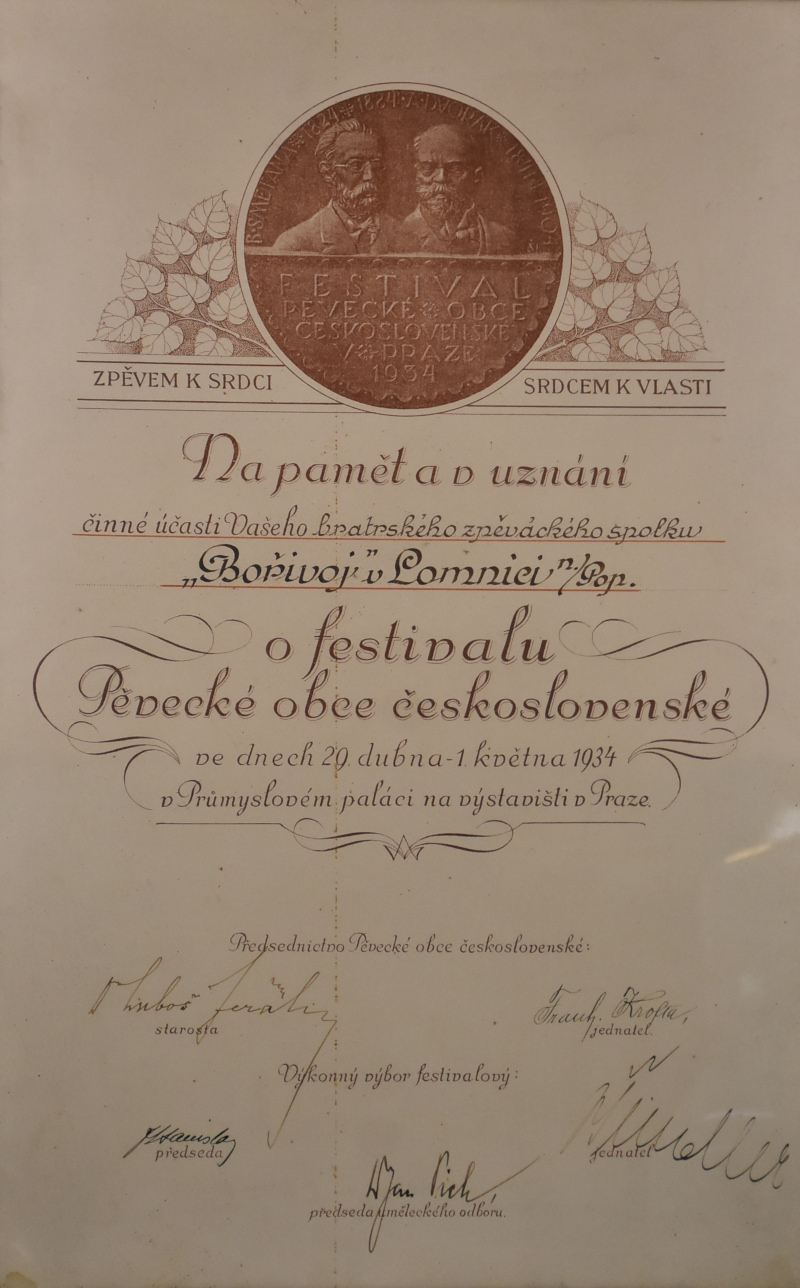 B. SMETANA ✻ 1824 ✻ 1884 · A. DVOŘÁK ✻ 1841 1904
FESTIVAL
PĚVECKÉ ✻ OBCE
ČESKOSLOVENSKÉ
V ✻ PRAZE
1934
ZPĚVEM K SRDCI
SRDCEM K VLASTI
Na paměť a v uznání
činné účasti Vašeho bratrského zpěváckého spolku
„Bořivoj” v Lomnici n/Pop.
o festivalu
Pěvecké obce československé
ve dnech 29. dubna - 1. května 1934
v Průmyslovém paláci na výstavišti v Praze.
Předsednictvo Pěvecké obce československé:
Luboš Jeřáb
starosta
Frant. Krofta,
jednatel.
Výkonný výbor festivalový:
předseda
jednatel
Jan
předseda uměleckého odboru.